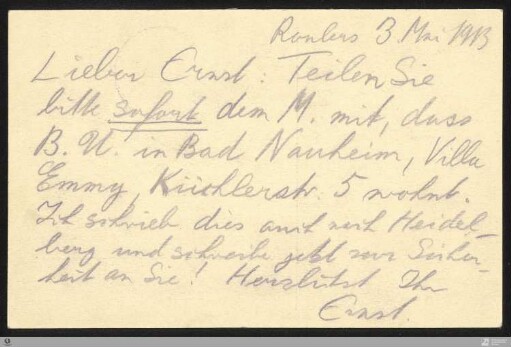 Roulers 3. Mai 1913
Lieber Ernst: Teilen Sie
bitte sofort dem M. mit, dass
B. U. in Bad Nauheim, Villa
Emmy, Küchlerstr. 5 wohnt.
Ich schrieb dies auch nach Heidel-
berg und schreibe jetzt zur Sicher-
heit an Sie! Herzlichst Ihr
Ernst.